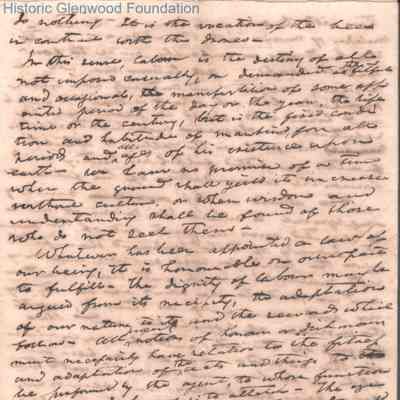 Historic Glenwood Foundation
do nothing. It is the vocation of the bees
in contrast with the drones.
In this sense, labour is the destiny of all
not imposed casually, or demanded as fitful
and occasional, the manifestation of some
period of the day or the year, the life
time or the century, but is the fixed condi
tion and habitude of mankind for all
periods and all ages of his existence upon
earth - we have no promise of a time
when the ground shall yield its increase
without culture, or when wisdom and
understanding shall be found of those
who do not seek them -
Whatever has been appointed a law of
our being, it is honourable in
to fulfil - the dignity of labour may be
argued from its necessity, the adaptation
of our nature to it and the rewards which
follow. All notion of honour or
must necessarily have relation to the
and adaptation of acts and things to
be performed by the agent, to whose function
to attach - the